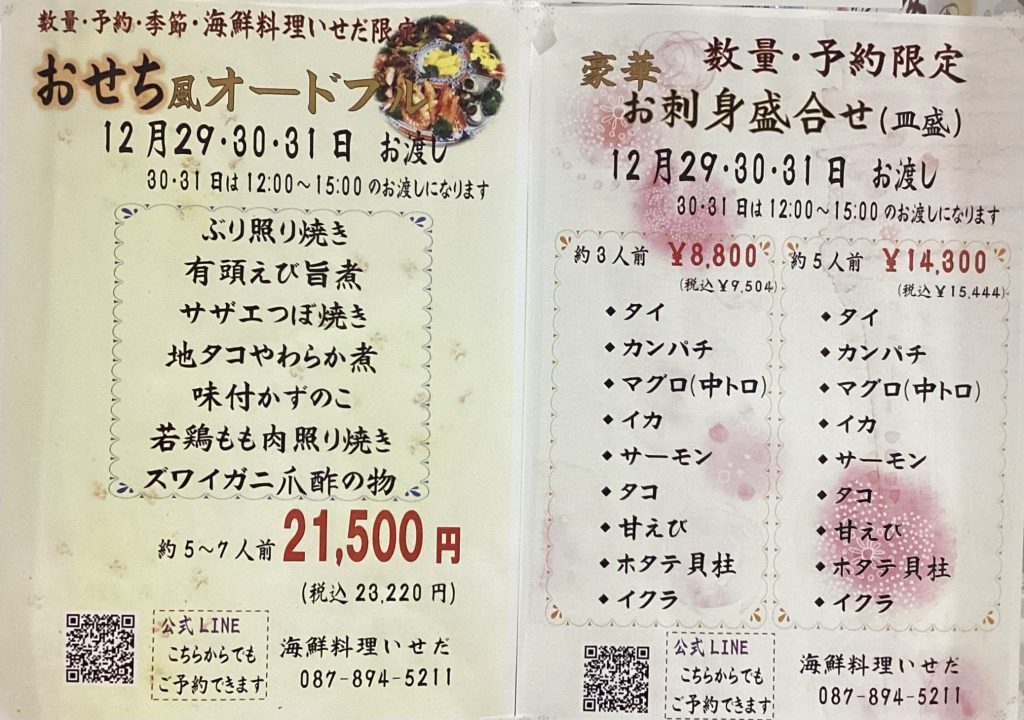 数量・予約・季節・海鮮料理いせだ限定
おせち風オードブル
12月29・30・31日 お渡し
30・31日は12:00～15:00のお渡しになります
ぶり照り焼き
有頭えび旨煮
サザエつぼ焼き
地タコやわらか煮
味付かずのこ
若鶏もも肉照り焼き
ズワイガニ爪酢の物
約5～7人前 21,500円
(税込 23,220 円)
公式LINE
こちらからでも
ご予約できます
海鮮料理いせだ
087-894-5211
豪華 数量・予約限定
お刺身盛合せ(皿盛)
12月29・30・31日 お渡し
30・31日は12:00～15:00のお渡しになります
約3人前 ￥8,800
(税込￥9,504)
◆タイ
◆カンパチ
◆マグロ(中トロ)
◆イカ
◆サーモン
◆タコ
◆甘えび
◆ホタテ貝柱
◆イクラ
約5人前 ￥14,300
(税込￥15,444)
◆タイ
◆カンパチ
◆マグロ(中トロ)
◆イカ
◆サーモン
◆タコ
◆甘えび
◆ホタテ貝柱
◆イクラ
公式LINE
こちらからでも
ご予約できます
海鮮料理いせだ
087-894-5211